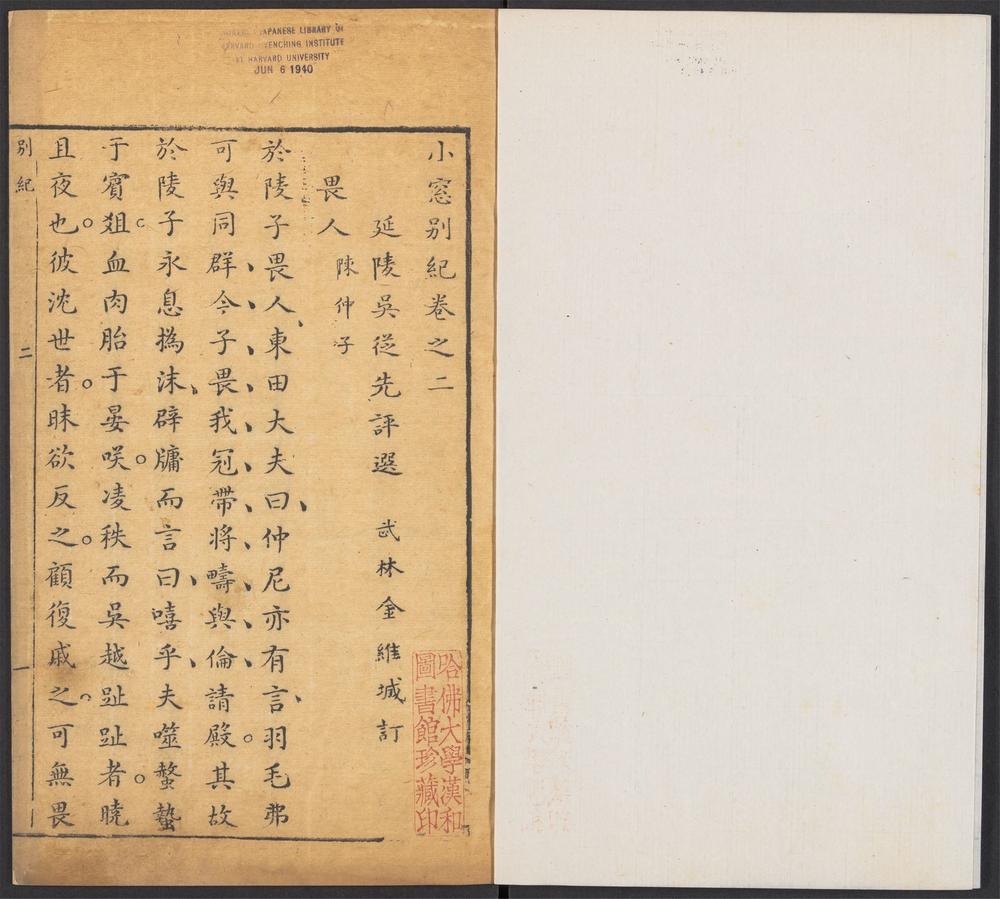 JAPANESE LIBRARY
HARVARD YENCHING INSTITUTE
AT HARVARD UNIVERSITY
JUN 6 1940
小窓別紀卷之二
延陵吳從先評選 武林金維城訂
畏人 陳仲子
於陵子畏人東田大夫曰仲尼亦有言羽毛弗
可與同群今子畏我冠帶將疇與倫請殿其故
於陵子永息撝沫辟牖而言曰嘻乎夫噬螫蟄
于賔爼血肉胎于晏咲凌秩而吳越趾趾者曉
且夜也彼沈世者昧欲反之顧復戚之可無畏
別紀
二
一
哈佛大學漢和
圖書館珍藏印